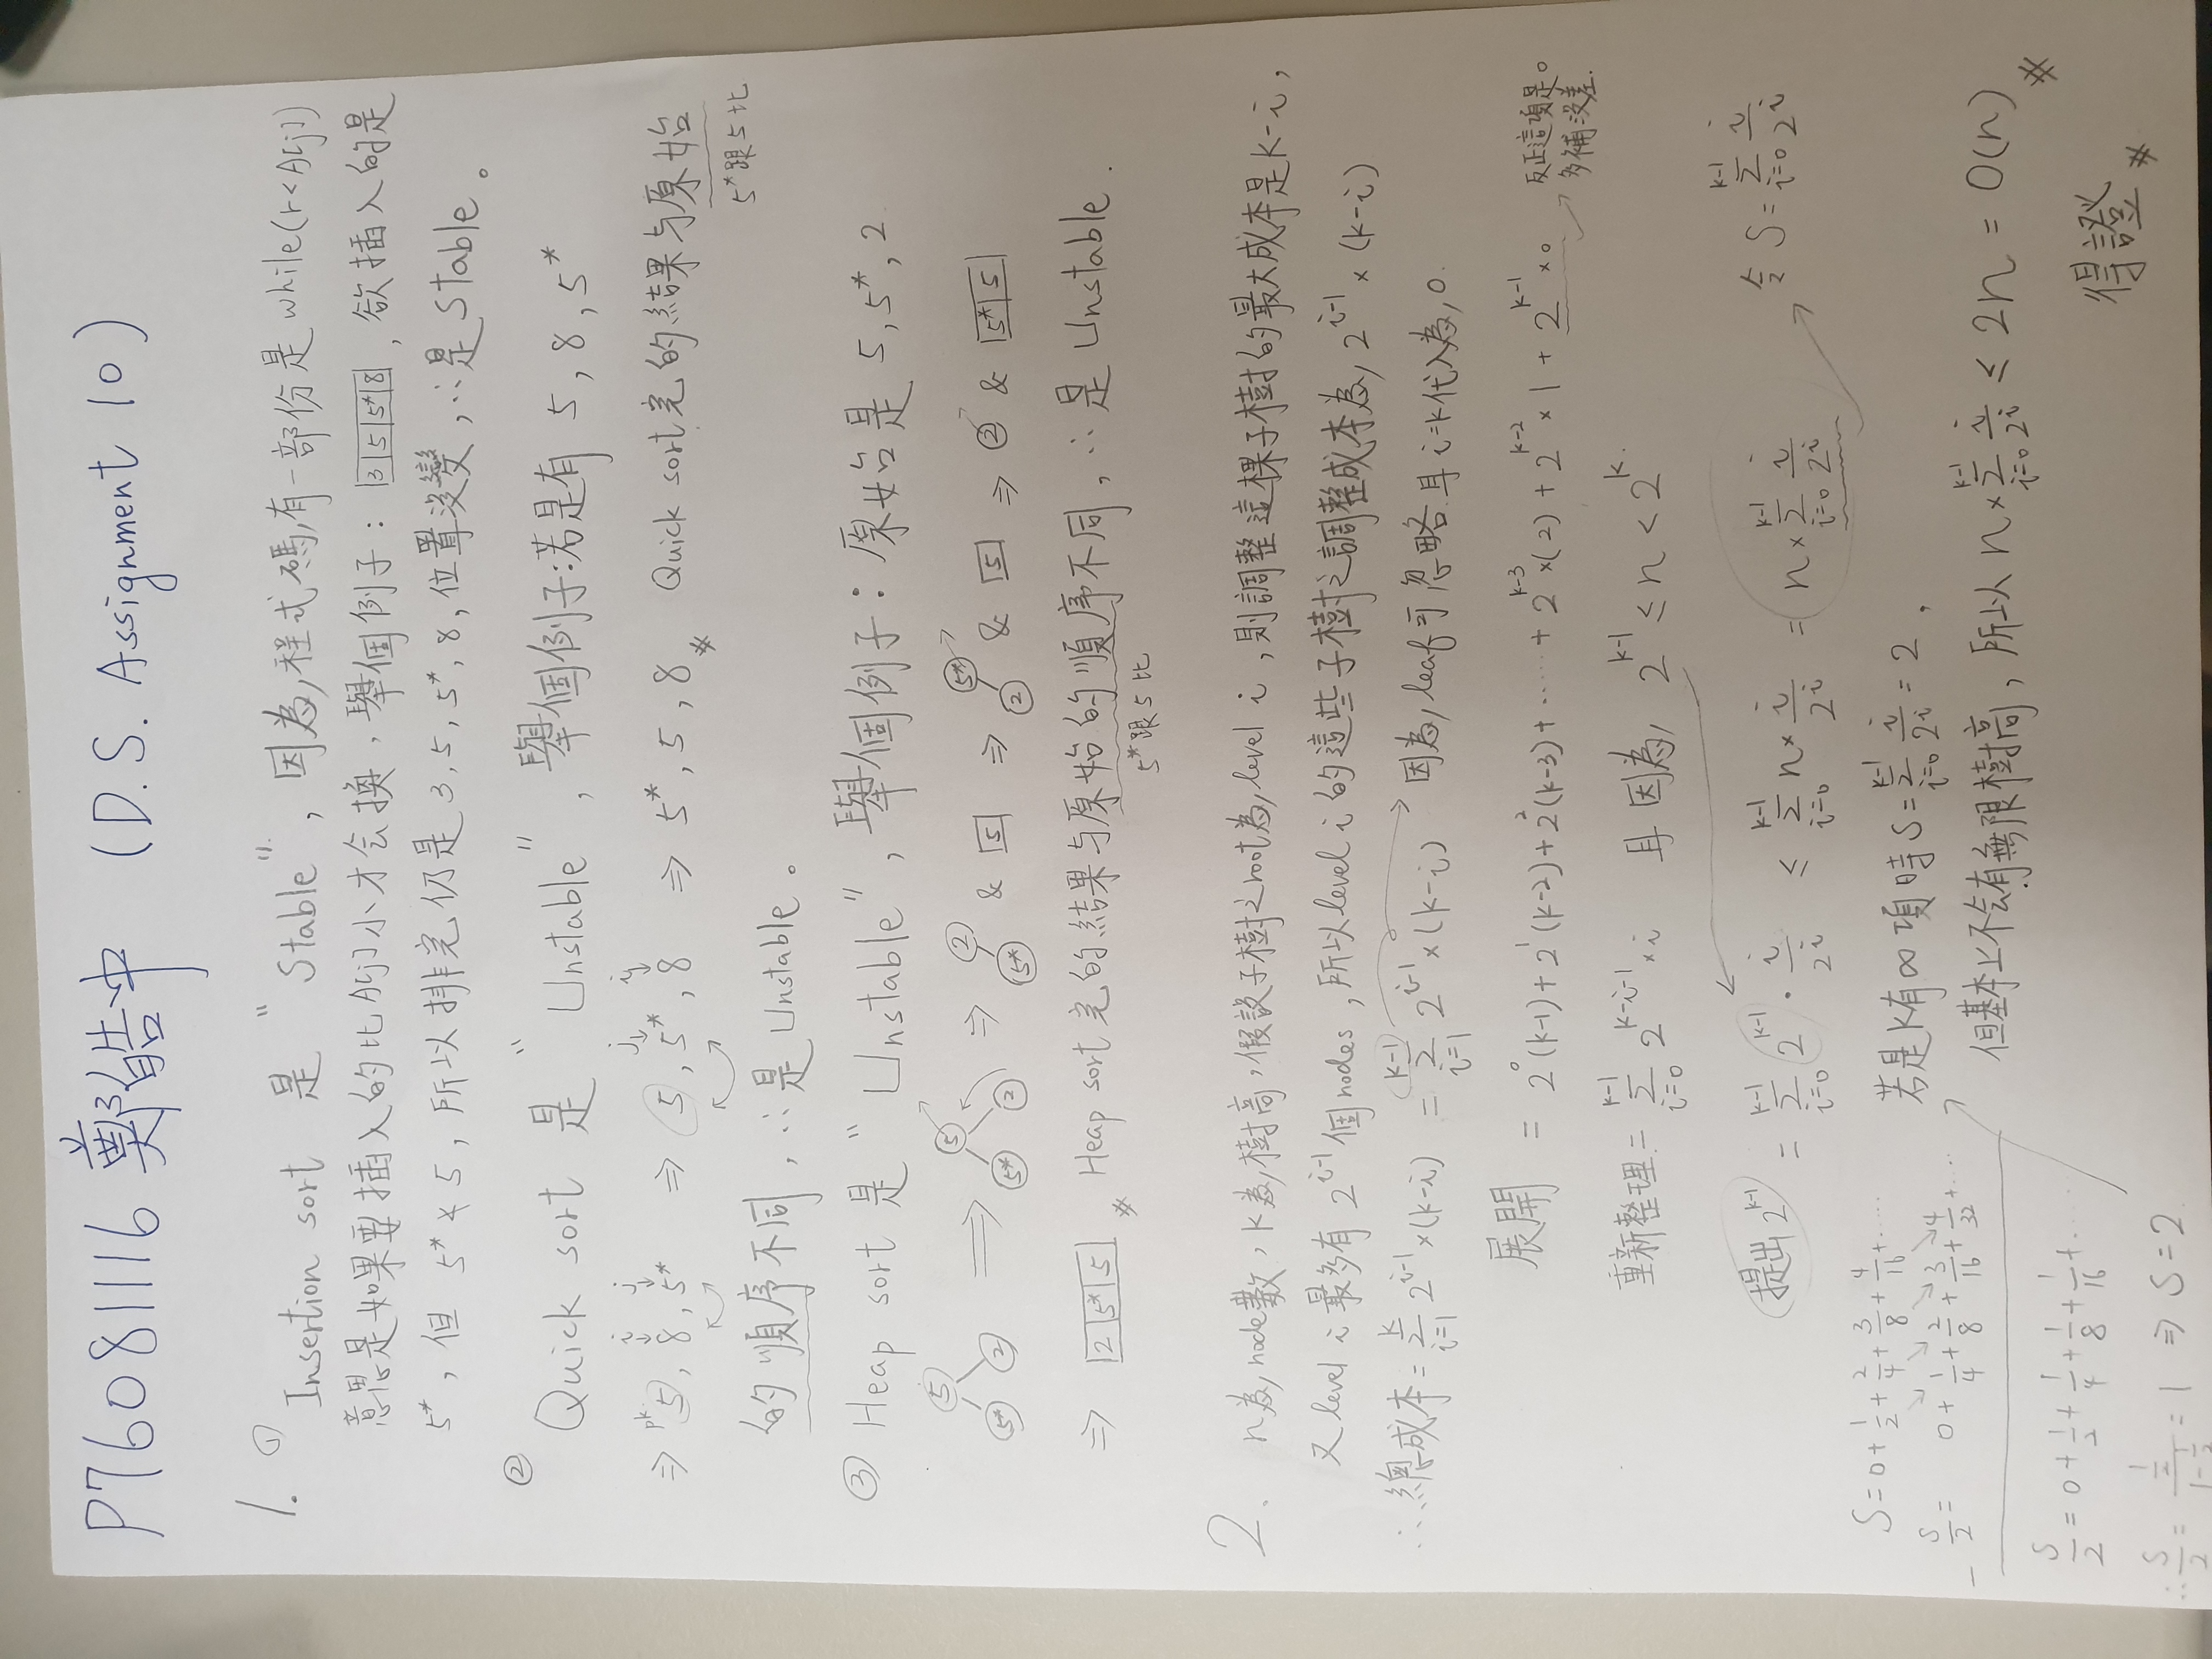 P76081116 鄭皓中 (D.S. Assignment 10)
1. ① Insertion sort 是 "Stable", 因為程式碼有一部份是 while(r<A[j])
意思是如果要插入的比A[j]小才会換, 舉個例子: 3 5 5* 8, 欲插入的是
5*, 但 5* ≮ 5, 所以排完仍是 3, 5, 5*, 8, 位置沒變, ∴是 Stable。
② Quick sort 是 "Unstable", 舉個例子:若是有 5, 8, 5*
i j j i
⇒ pk 5, 8, 5* ⇒ 5, 5*, 8 ⇒ 5*, 5, 8 # Quick sort完的結果与原始
5*跟5比
的順序不同, ∴是 Unstable。
③ Heap sort 是 "Unstable", 舉個例子: 原始是 5, 5*, 2
5 5* 2 ⇒ 5 5* 2 ⇒ 2 5* & 5 ⇒ 5* 2 & 5 ⇒ 2 & 5* 5
⇒ 2 5* 5 # Heap sort 完的結果与原始的順序不同, ∴是 Unstable.
5*跟5比
2. n為node數, k為樹高, 假設子樹之root為level i, 則調整這棵子樹的最大成本是k-i,
又level i 最多有 2^{i-1} 個nodes, 所以level i 的這些子樹之調整成本為 2^{i-1} × (k-i)
∴總成本 = \sum_{i=1}^{k} 2^{i-1}×(k-i) = \sum_{i=1}^{k-1} 2^{i-1}×(k-i) → 因為leaf可忽略且i=k代入為0.
展開 = 2^0(k-1)+2^1(k-2)+2^2(k-3)+……+2^{k-3}×(2)+2^{k-2}×1+2^{k-1}×0 → 反正這項是0
多補沒差.
重新整理 = \sum_{i=0}^{k-1} 2^{k-i-1}×i 且因為 2^{k-1} ≤ n < 2^k.
提出2^{k-1} = \sum_{i=0}^{k-1} 2^{k-1}·\frac{i}{2^i} ≤ \sum_{i=0}^{k-1} n×\frac{i}{2^i} = n×\sum_{i=0}^{k-1} \frac{i}{2^i} 令 S = \sum_{i=0}^{k-1} \frac{i}{2^i}
S = 0+\frac{1}{2}+\frac{2}{4}+\frac{3}{8}+\frac{4}{16}+……
- \frac{S}{2} = 0+\frac{1}{4}+\frac{2}{8}+\frac{3}{16}+\frac{4}{32}+……
\frac{S}{2} = 0+\frac{1}{2}+\frac{1}{4}+\frac{1}{8}+\frac{1}{16}+……
∴\frac{S}{2} = \frac{\frac{1}{2}}{1-\frac{1}{2}} = 1 ⇒ S=2
若是k有∞項時 S = \sum_{i=0}^{k-1} \frac{i}{2^i} = 2,
但基本上不会有無限樹高, 所以 n×\sum_{i=0}^{k-1} \frac{i}{2^i} ≤ 2n = O(n) #
得證 #